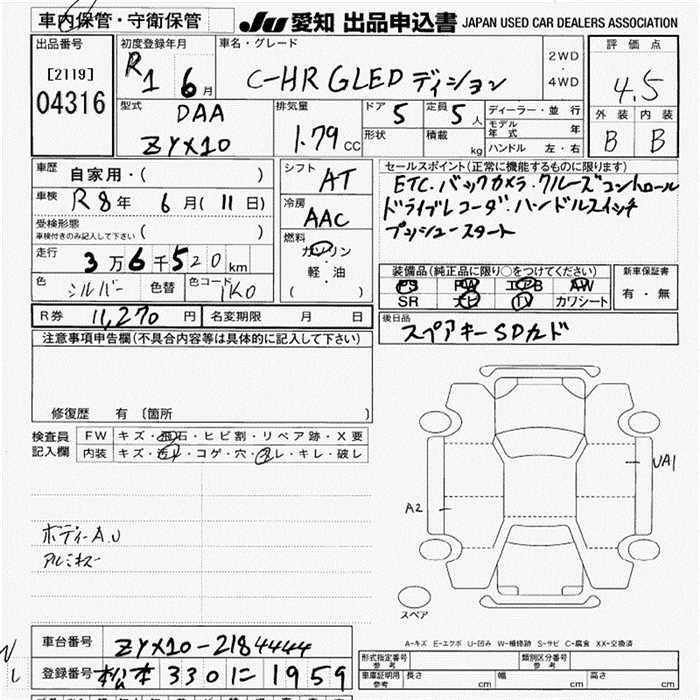 車内保管・守衛保管
JU 愛知 出品申込書 JAPAN USED CAR DEALERS ASSOCIATION
出品番号
[2119]
04316
初度登録年月
R1 6月
車名・グレード
C-HR GLEDディション
2WD
・
4WD
評価点
4.5
外装 内装
B B
型式
DAA
ZYX10
排気量
1.79 CC
ドア 5
定員 5 人
形状
積載 kg
ディーラー・並行
モデル年式 年
ハンドル 左・右
車歴 自家用・( )
車検 R8年 6月(11日)
受検形態
車検付きのみ記入して下さい ( )
走行 3万6千520km
色 シルバー 色替 色コード 1K0
シフト AT
冷房 AAC
燃料
ガソリン
・
軽・油
( )
セールスポイント(正常に機能するものに限ります)
ETC.バックカメラ.クルーズコントロール
ドライブレコーダ.ハンドルスイッチ
プッシュースタート
装備品(純正品に限り○をつけてください)
PS PW エアB AW
SR ナビ TV カワシート
新車保証書
有・無
R券 11,270円 名変期限 月 日
後日品
スペアキーSDカード
注意事項申告欄(不具合内容等は具体的に記入して下さい)
修復歴 有〔箇所 〕
検査員記入欄
FW キズ・飛石・ヒビ割・リペア跡・X要
内装 キズ・汚れ・コゲ・穴・スレ・キレ・破レ
ボディーA.U
アルミキズ
UA1
A2
スペア
A-キズ E-エクボ U-凹み W-補修跡 S-サビ C-腐食 XX-交換済
車台番号 ZYX10-2184444
登録番号 松本 330 に 1959
形式指定番号 参考
類別区分番号 参考
車庫証明用 参考 長さ cm 幅 cm 高さ cm